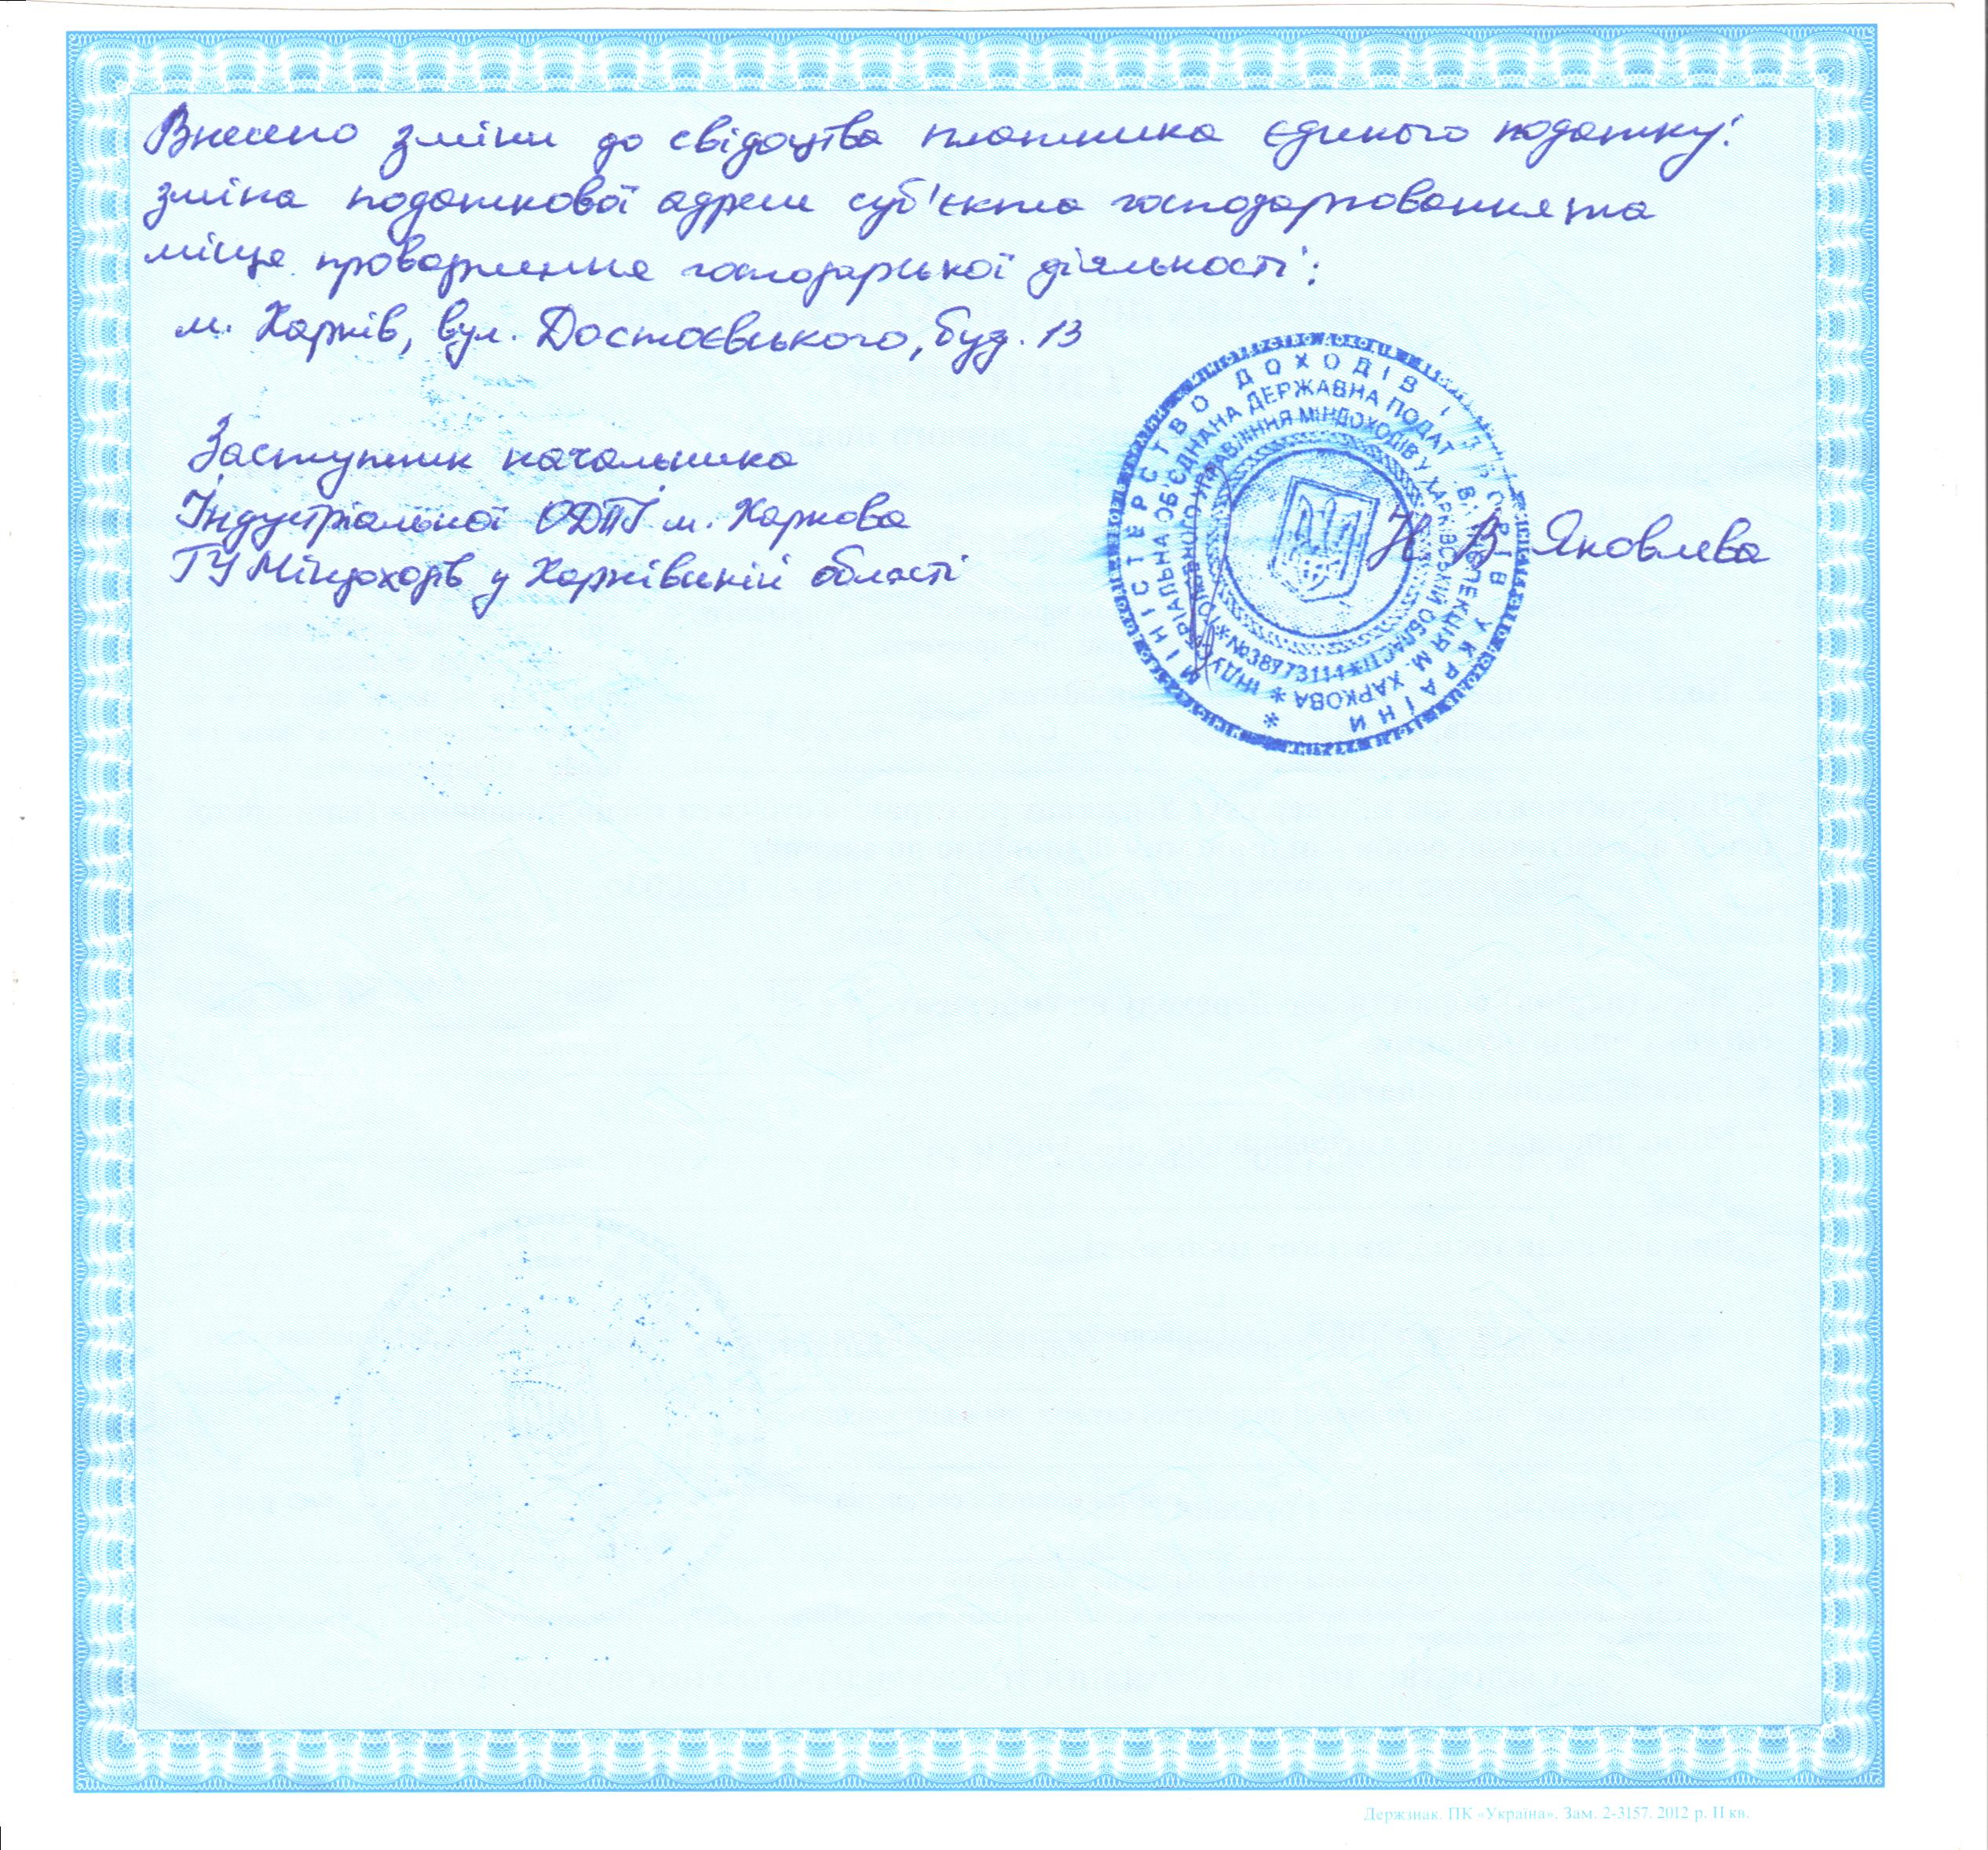 Внесено зміни до свідоцтва платника єдиного податку:
зміна податкової адреси суб'єкта господарювання та
місце провадження господарської діяльності:
м. Харків, вул. Достоєвського, буд. 13
Заступник начальника
Індустріальної ОДПІ м. Харкова
ГУ Міндоходів у Харківській області
Н. В. Яковлева
МІНІСТЕРСТВО ДОХОДІВ І ЗБОРІВ УКРАЇНИ *
ІНДУСТРІАЛЬНА ОБ'ЄДНАНА ДЕРЖАВНА ПОДАТКОВА ІНСПЕКЦІЯ М. ХАРКОВА *
ГОЛОВНОГО УПРАВЛІННЯ МІНДОХОДІВ У ХАРКІВСЬКІЙ ОБЛАСТІ
*№38773111*
Держзнак. ПК «Україна». Зам. 2-3157. 2012 р. II кв.